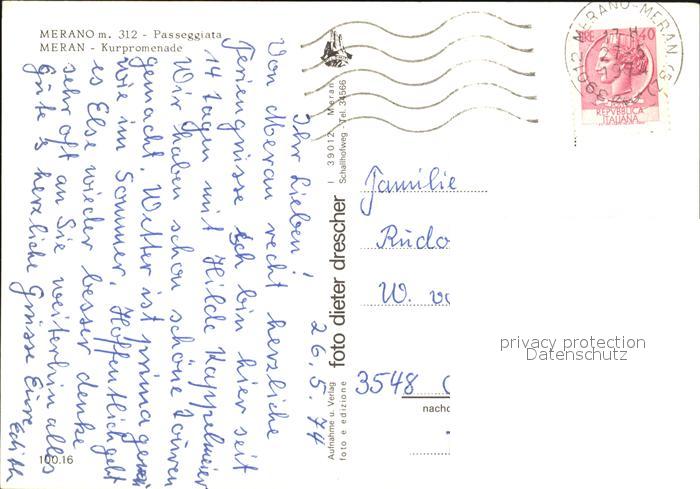 MERANO m. 312 - Passeggiata
MERAN - Kurpromenade
26.5.74
Ihr Lieben!
Von Meran recht herzliche
Feriengrüsse. Ich bin hier seit
14 Tagen mit Hilde Kappelmeier
Wir haben schon schöne Touren
gemacht. Wetter ist prima
wie im Sommer. Hoffentlich geht
es Else wieder besser denke
sehr oft an Sie weiterhin alles
Gute & herzliche Grüsse Eure
Edith
100.16
Aufnahme u. Verlag
foto e edizione
foto dieter drescher
I 39012 Meran
Schallhofweg - Tel. 34566
39012 MERANO-MERAN (BZ)
LIRE 40
REPVBBLICA
ITALIANA
Familie
Rudo
W. v
3548
nacho
privacy protection
Datenschutz